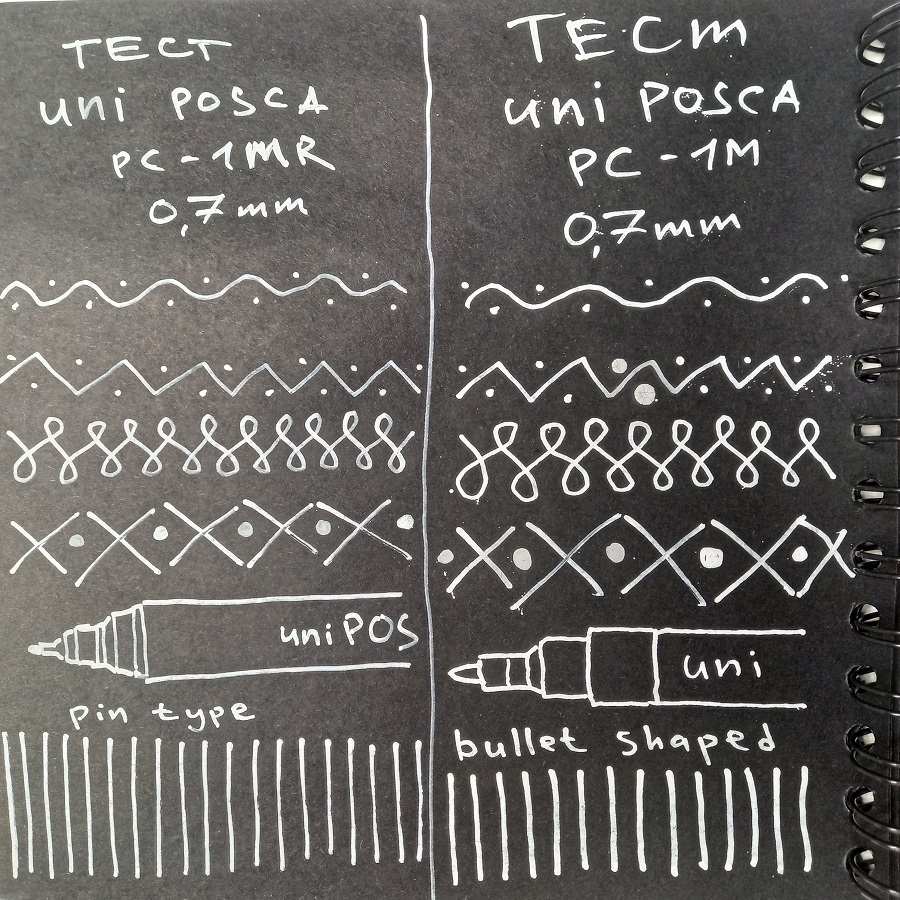 ТЕСТ
uni POSCA
PC-1MR
0,7mm
uniPOS
pin type
ТЕСт
uni POSCA
PC-1M
0,7mm
uni
bullet shaped